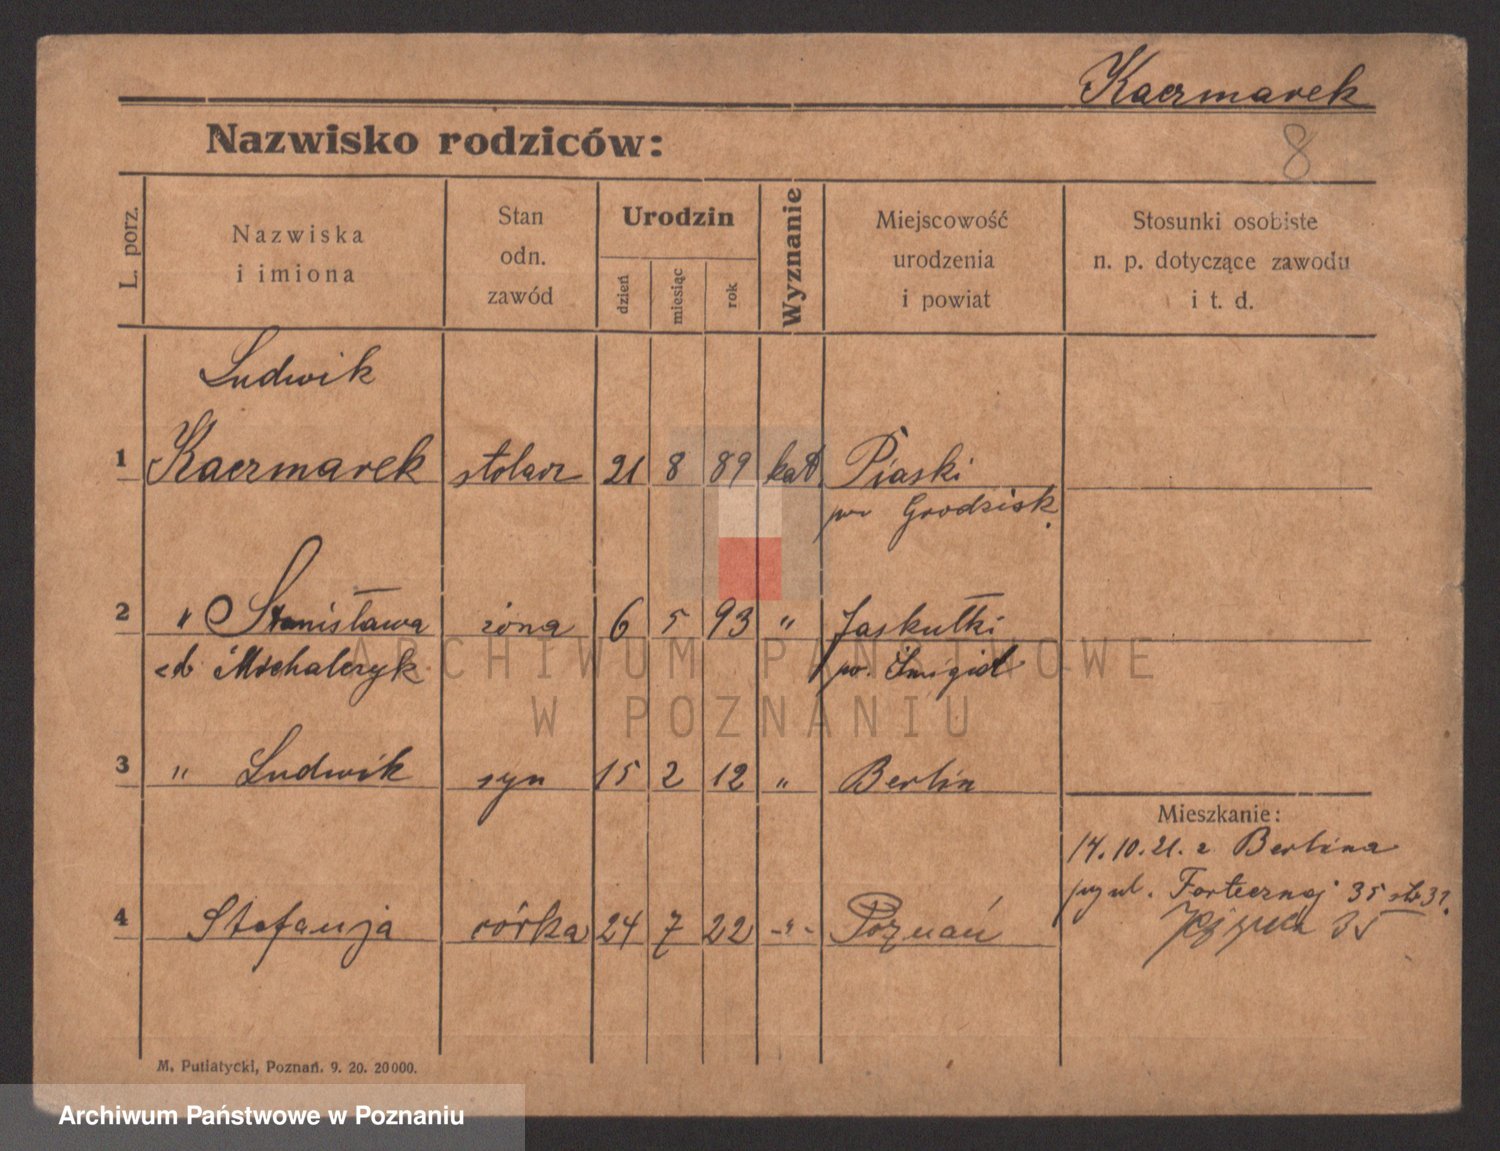 Kaczmarek
Nazwisko rodziców:
8
L. porz.
Nazwiska
i imiona
Stan
odn.
zawód
Urodzin
dzień
miesiąc
rok
Wyznanie
Miejscowość
urodzenia
i powiat
Stosunki osobiste
n. p. dotyczące zawodu
i t. d.
Ludwik
1 Kaczmarek stolarz 21 8 89 kat Piaski
pow Grodzisk.
2 " Stanisława żona 6 5 93 " Jaskułki
zd Michalczyk po. Śmigiel
ARCHIWUM PAŃSTWOWE
W POZNANIU
3 " Ludwik syn 15 2 12 " Berlin
Mieszkanie:
14.10.21. z Berlina
przy ul. Fortecznej 35
4 Stefanja córka 24 7 22 -"- Poznań
35
M. Putiatycki, Poznań. 9. 20. 20000.
Archiwum Państwowe w Poznaniu